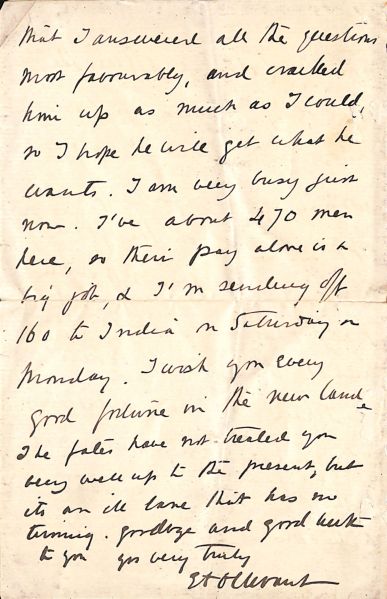 that I answered all the questions
most favourably, and cracked
him up as much as I could,
so I hope he will get what he
wants. I am very busy just
now. I've about 470 men
here, so their pay alone is a
big job, & I'm sending off
160 to India on Saturday or
Monday. I wish you every
good fortune in the new land.
The fates have not treated you
very well up to the present, but
its an ill lane that has no
turning. Goodbye and good luck
to you yrs very truly